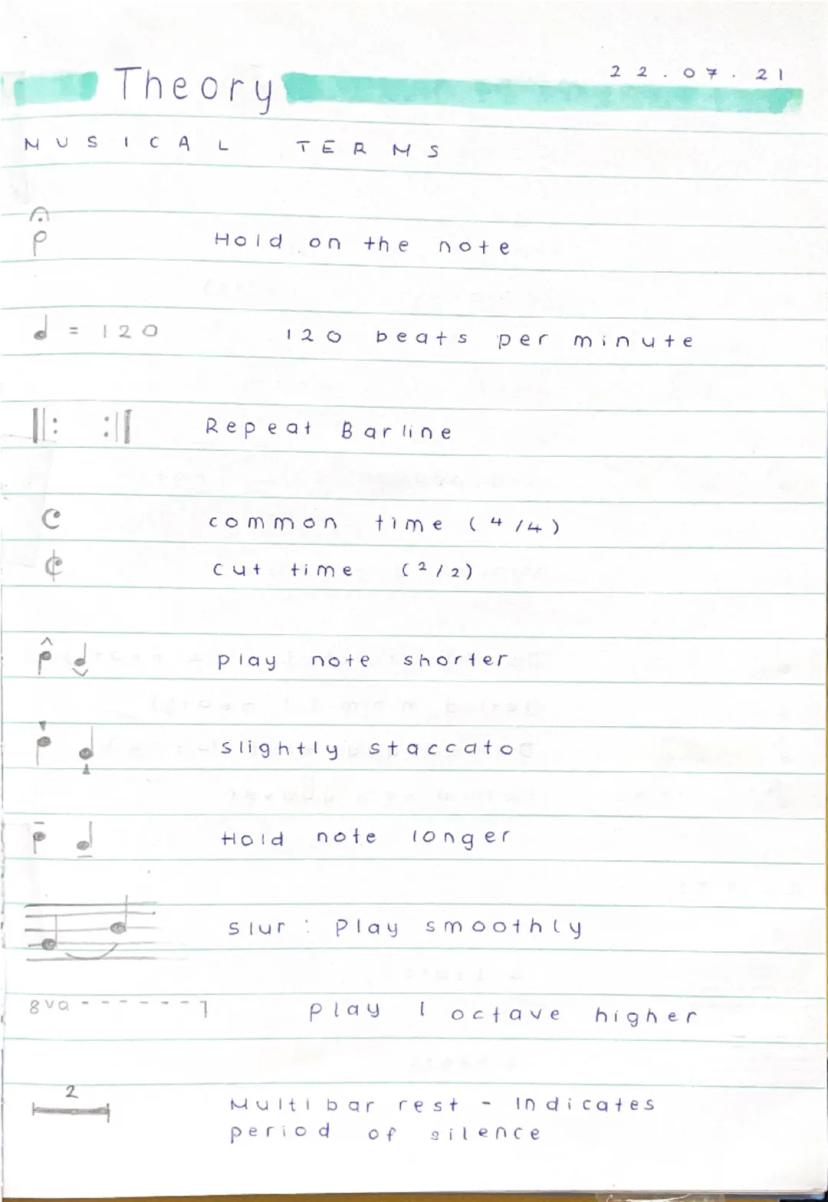 Theory
22.07.21
MUSICAL TERMS
Hold on the note
= 120 120 beats per minute
Repeat Barline
C common time (4/4)
¢ cut time (2/2)
play note shorter
slightly staccato
Hold note longer
Slur : Play smoothly
8va - - - - - - ┐ Play 1 octave higher
2
Multibar rest - Indicates
period of silence